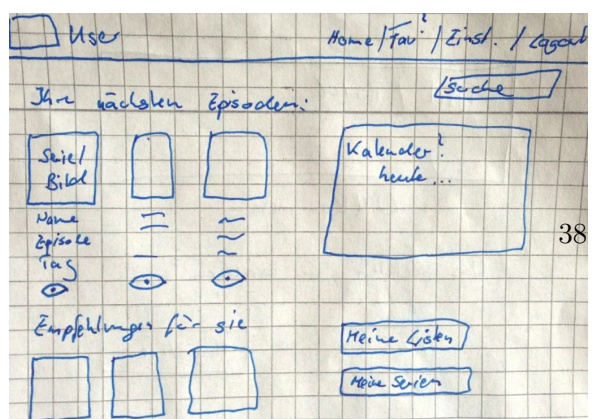 User
Home / Fav? / Einst. / Logout
Suche
Ihre nächsten Episoden:
Serie/
Bild
Name
Episode
Tag
Kalender?
heute...
38
Empfehlungen für sie
Meine Listen
Meine Serien